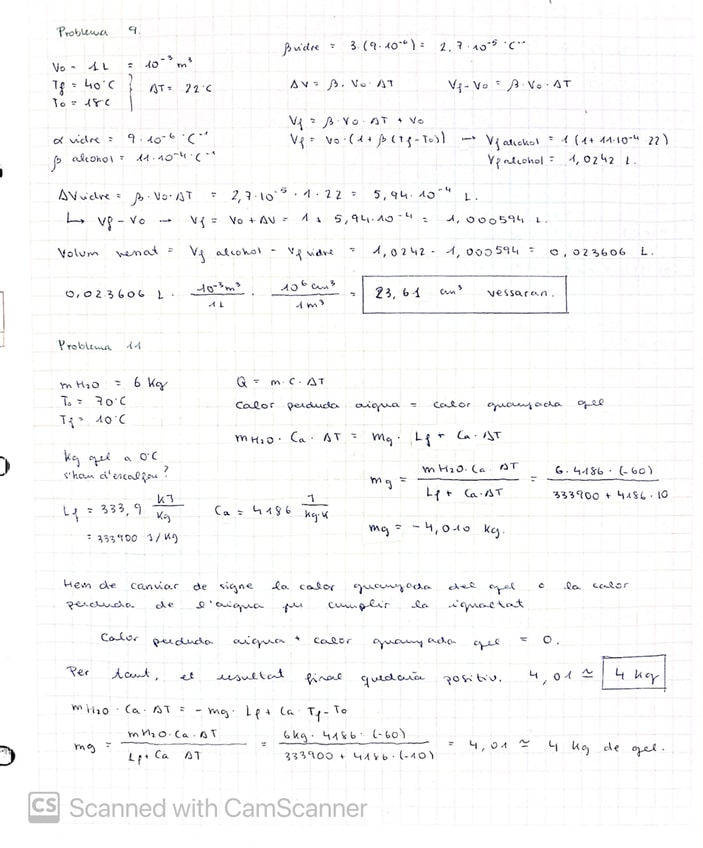 Problema 9.
βvidre = 3·(9·10⁻⁶) = 2,7·10⁻⁵ °C⁻¹
V₀ = 1L = 10⁻³ m³
Tf = 40°C } ΔT = 22°C
T₀ = 18C
ΔV = β·V₀·ΔT Vf-V₀ = β·V₀·ΔT
Vf = β·V₀·ΔT + V₀
α vidre = 9·10⁻⁶ °C⁻¹
β alcohol = 11·10⁻⁴ °C⁻¹
Vf = V₀·(1+β(Tf-T₀)) → Vf alcohol = 1(1+11·10⁻⁴·22)
Vf alcohol = 1,0242 L.
ΔVvidre = β·V₀·ΔT = 2,7·10⁻⁵·1·22 = 5,94·10⁻⁴ L.
↳ Vf-V₀ → Vf = V₀+ΔV = 1+5,94·10⁻⁴ = 1,000594 L.
Volum vessat = Vf alcohol - Vf vidre = 1,0242 - 1,000594 = 0,023606 L.
0,023606 L · 10⁻³m³/1L · 10⁶cm³/1m³ = 23,61 cm³ vessaran.
Problema 11
mH₂O = 6 Kg
T₀ = 70°C
Tf = 10°C
Q = m·C·ΔT
Calor perduda aigua = calor guanyada gel
mH₂O·Ca·ΔT = mg·Lf+Ca·ΔT
Kg gel a 0°C
s'han d'escalfar?
mg = mH2O·Ca·ΔT/Lf+Ca·ΔT = 6·4186·(-60)/333900+4186·10
Lf = 333,9 KJ/Kg Ca = 4186 J/Kg·K
= 333900 J/Kg
mg = -4,010 Kg.
Hem de canviar de signe la calor guanyada del gel o la calor
perduda de l'aigua per cumplir la igualtat
Calor perduda aigua + calor guanyada gel = 0.
Per tant, el resultat final quedaria positiu. 4,01 ≃ 4 Kg
mH₂O·Ca·ΔT = -mg·Lf+Ca·Tf-T₀
mg = mH₂O·Ca·ΔT/Lf+Ca ΔT = 6kg·4186·(-60)/333900+4186·(-10) = 4,01 ≃ 4 Kg de gel.
CS Scanned with CamScanner